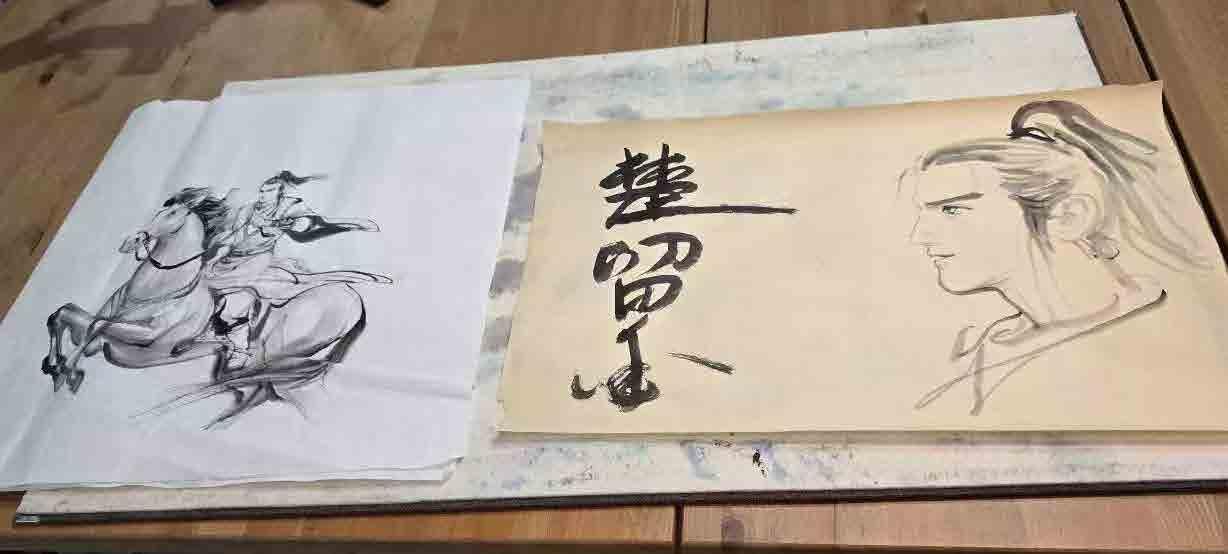 楚留香